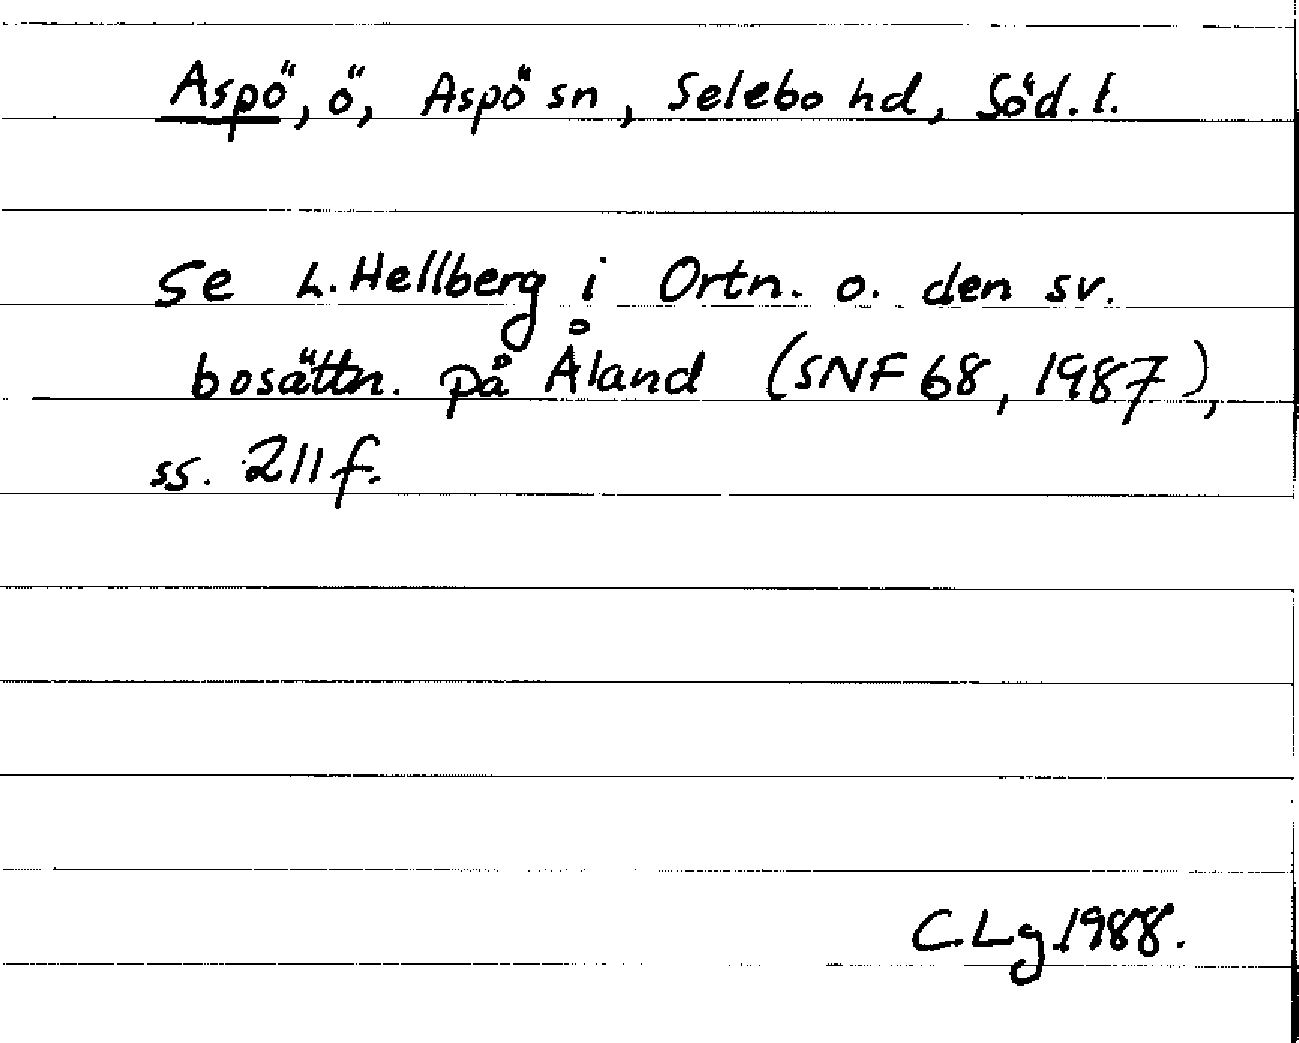 Aspö, ö, Aspö sn, Selebo hd, Söd. l.
Se L. Hellberg i Ortn. o. den sv.
bosättn. på Åland (SNF 68, 1987),
ss. 211 f.
C Lg 1988.